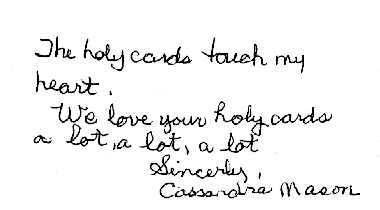 The holy cards touch my
heart.
We love your holy cards
a lot, a lot, a lot
Sincerly,
Cassandra Mason